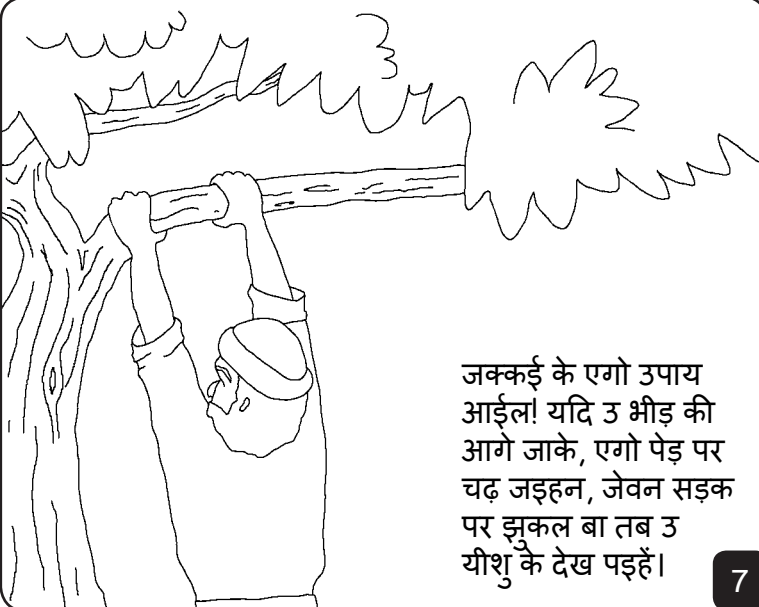 जक्कई के एगो उपाय
आईल! यदि उ भीड़ की
आगे जाके, एगो पेड़ पर
चढ़ जइहन, जेवन सड़क
पर झुकल बा तब उ
यीशु के देख पइहें।
7